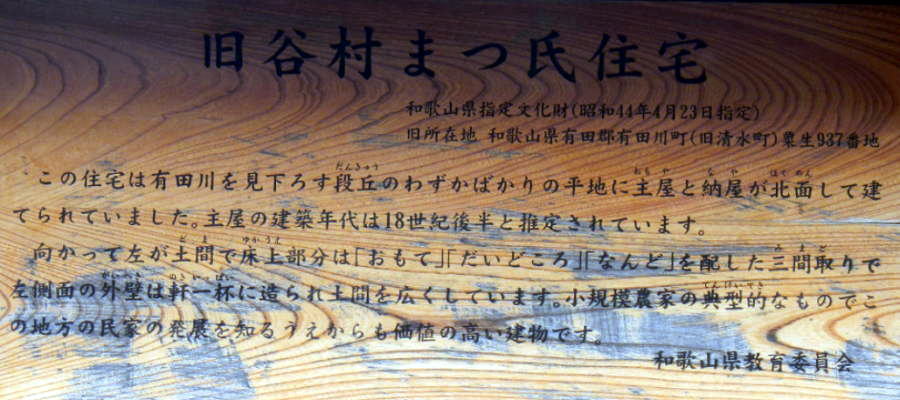 旧谷村まつ氏住宅
和歌山県指定文化財(昭和44年4月23日指定)
旧所在地 和歌山県有田郡有田川町(旧清水町)粟生937番地
この住宅は有田川を見下ろす段丘のわずかばかりの平地に主屋と納屋が北面して建
てられていました。主屋の建築年代は18世紀後半と推定されています。
向かって左が土間で床上部分は「おもて」「だいどころ」「なんど」を配した三間取りで
左側面の外壁は軒一杯に造られ土間を広くしています。小規模農家の典型的なものでこ
の地方の民家の発展を知るうえからも価値の高い建物です。
和歌山県教育委員会